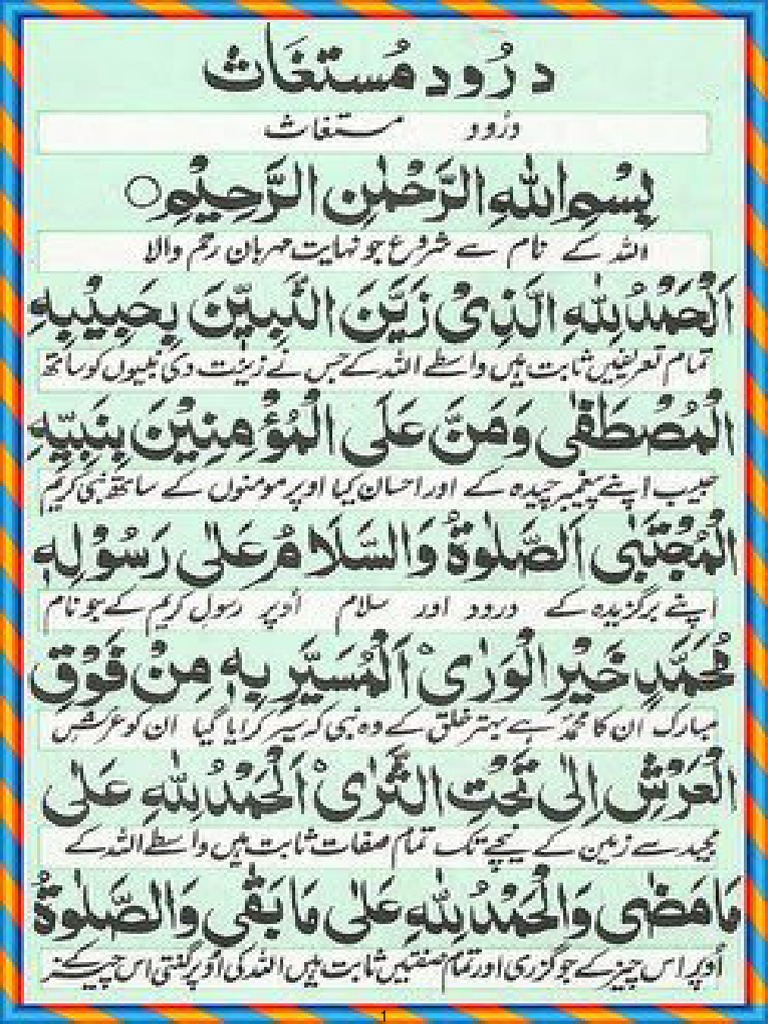 دُرُود مُستغَاث
درُود مستغاث
بِسْمِ اللهِ الرَّحْمٰنِ الرَّحِيْمِ○
اللہ کے نام سے شروع جو نہایت مہربان رحم والا
اَلْحَمْدُ لِلّٰهِ الَّذِیْ زَيَّنَ النَّبِيّٖنَ بِحَبِيْبِهِ
تمام تعریفیں ثابت ہیں واسطے اللہ کے جس نے زینت دی نبیوں کو ساتھ
الْمُصْطَفٰى وَمَنَّ عَلَى الْمُؤْمِنِيْنَ بِنَبِيِّهِ
حبیب اپنے پیغمبر چیدہ کے اور احسان کیا اوپر مومنوں کے ساتھ نبی کریم
الْمُجْتَبٰى اَلصَّلٰوةُ وَالسَّلَامُ عَلٰى رَسُوْلِهٖ
اپنے برگزیدہ کے درود اور سلام اُوپر رسول کریم کے جو نام
مُحَمَّدٍ خَيْرِ الْوَرٰىْ اَلْمُسَيَّرِ بِهٖ مِنْ فَوْقِ
مبارک ان کا محمدؐ ہے بہتر خلق کے وہ نبی کہ سیر کرایا گیا ان کو عرش
الْعَرْشِ اِلٰى تَحْتِ الثَّرٰىْ اَلْحَمْدُ لِلّٰهِ عَلٰى
مجید سے زمین کے نیچے تک تمام صفات ثابت ہیں واسطے اللہ کے
مَا مَضٰى وَالْحَمْدُ لِلّٰهِ عَلٰى مَا بَقٰى وَالصَّلٰوةُ
اُوپر اس چیز کے جو گزری اور تمام صفتیں ثابت ہیں اللہ کی اُوپر گنتی اس چیز
1